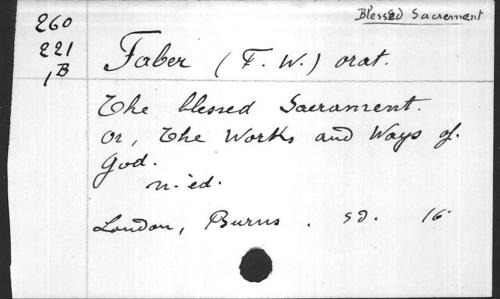 Blessed Sacrement
260
221
1B
Faber (F. W.) orat.
The blessed Sacrament.
or, The Works and Ways of.
God.
n. ed.
London, Burns . sd. 16